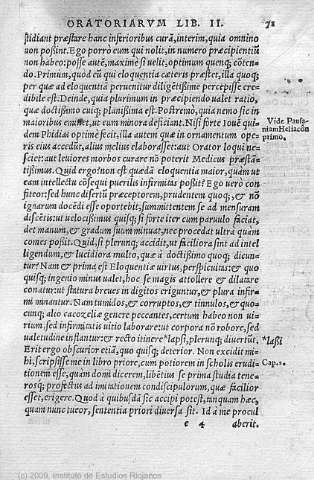 ORATORIARVM LIB. II. 72
stidiant præstare hanc inferioribus curā, interim, quia omnino
non possint. Ego porrò eum qui nolit, in numero præcipientiū
non habeo: posse autē, maximè si velit, optimum quenq; cōten-
do. Primùm, quòd eū qui eloquentia cæteris præstet, illa quoq;
per quæ ad eloquentiā peruenitur diligētissimè percepisse cre-
dibile est. Deinde, quia plurimum in præcipiendo valet ratio,
quæ doctissimo cuiq; planissima est. Postremò, quia nemo sic in
maioribus eminet, ut eum minora deficiant. Nisi fortè Iouē qui-
dem Phidias optimè fecit, illa autem quæ in ornamentum ope-
ris eius accedūt, alius melius elaborasset: aut Orator loqui ne-
sciet: aut leuiores morbos curare nō poterit Medicus præstā-
tissimus. Quid ergo? non est quædā eloquentia maior, quàm ut
eam intellectu cōsequi puerilis infirmitas possit? Ego uerò con
fiteor: sed hunc disertū præceptorem, prudentem quoq;, & nō
ignarum docēdi esse oportebit, summittentem se ad mensuram
discētis: ut uelocissimus quisq; si fortè iter cum paruulo faciat,
det manum, & gradum suum minuat, nec procedat ultra quàm
comes possit. Quid, si plerunq; accidit, ut faciliora sint ad intel
ligendum, & lucidiora multo, quæ à doctissimo quoq; dicun-
tur? Nam & prima est Eloquentiæ uirtus, perspicuitas: & quo
quisq; ingenio minus ualet, hoc se magis attollere & dilatare
conatur: ut statura breues in digitos eriguntur, & plura infir
mi minantur. Nam tumidos, & corruptos, & tinnulos, & quo-
cunq; alio cacozeliæ genere peccantes, certum habeo non ui-
rium, sed infirmitatis uitio laborare: ut corpora nō robore, sed
ualetudine inflantur: & recto itinere *lapsi, plerunq; diuertūt.
Erit ergo obscurior etiā, quo quisq; deterior. Non excidit mi-
hi, scripsisse me in libro priore, cum potiorem in scholis erudi
tionem esse, quàm domi dicerem, libētius se prima studia tene-
rosq; profectus ad imitationem condiscipulorum, quæ facilior
esset, erigere. Quod à quibusdā sic accipi potest, tanquam hæc,
quam nunc tueor, sententia priori diuersa sit. Id à me procul
e 4 aberit.
Vide Pausa-
niam Heliacōn
primo.
*lassi
Cap. 2.
(c) 2009, Instituto de Estudios Riojanos